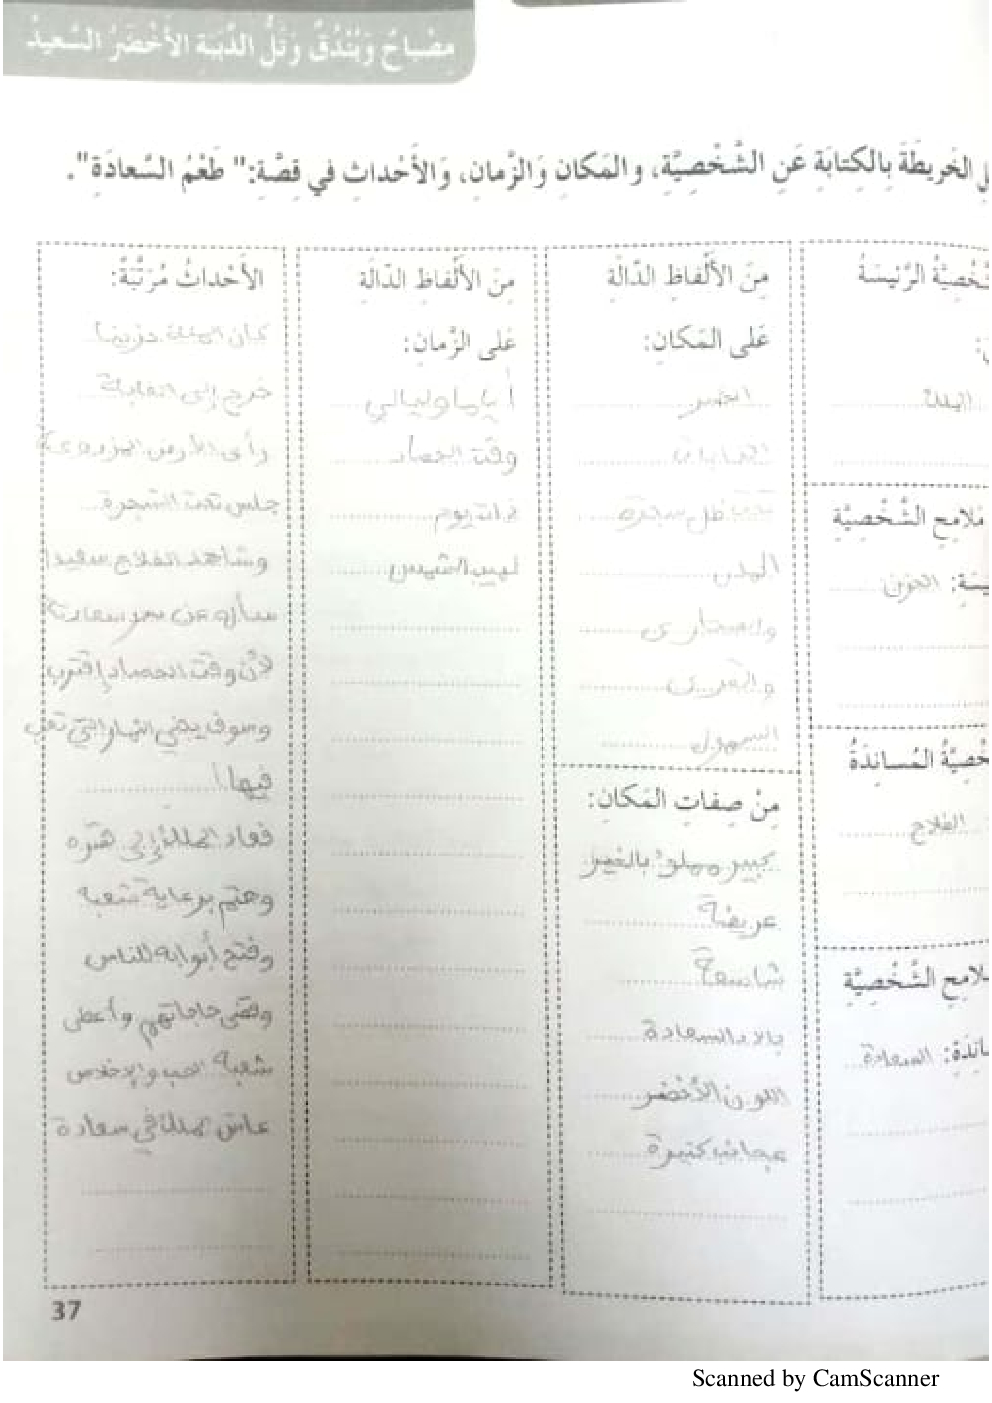 مِصْباحٌ وَبُنْدُقٌ وَتَلُّ الدِّبَبَةِ الأَخْضَرُ السَّعيدُ
الخَريطَةَ بِالكِتابَةِ عَنِ الشَّخْصِيَّةِ، والمَكانِ وَالزَّمانِ، وَالأَحْداثِ في قِصَّةِ:" طَعْمُ السَّعادَةِ".
الرَّئيسَةُ
الملك
مَلامِحِ الشَّخْصِيَّةِ
الحزن
المُسانِدَةُ
الفلاح
الشَّخْصِيَّةِ
السعادة
مِنَ الأَلْفاظِ الدّالَّةِ
عَلى المَكانِ:
القصر
الغابات
تحت ظل شجرة
المدن
والقرى
السهول
مِنْ صِفاتِ المَكانِ:
كبير ومملوء بالخير
عريضة
شاسعة
بلاد السعادة
اللون الأخضر
عجائب كثيرة
مِنَ الأَلْفاظِ الدّالَّةِ
عَلى الزَّمانِ:
أياما وليالي
وقت الحصاد
ذات يوم
لهيب الشمس
الأَحْداثُ مُرَتَّبَةً:
كان الملك حزينا
خرج إلى الغابة
رأى الأرض المزروعة
جلس تحت الشجرة
وشاهد الفلاح سعيدا
سأله عن سر سعادته
لأن وقت الحصاد إقترب
وسوف يجني الثمار التي تعب
فيها
فعاد الملك إلى قصره
وهتم برعاية شعبه
وفتح أبوابه للناس
وقضى حاجاتهم وأعطى
شعبه الحب والإخلاص
عاش الملك في سعادة
37
Scanned by CamScanner